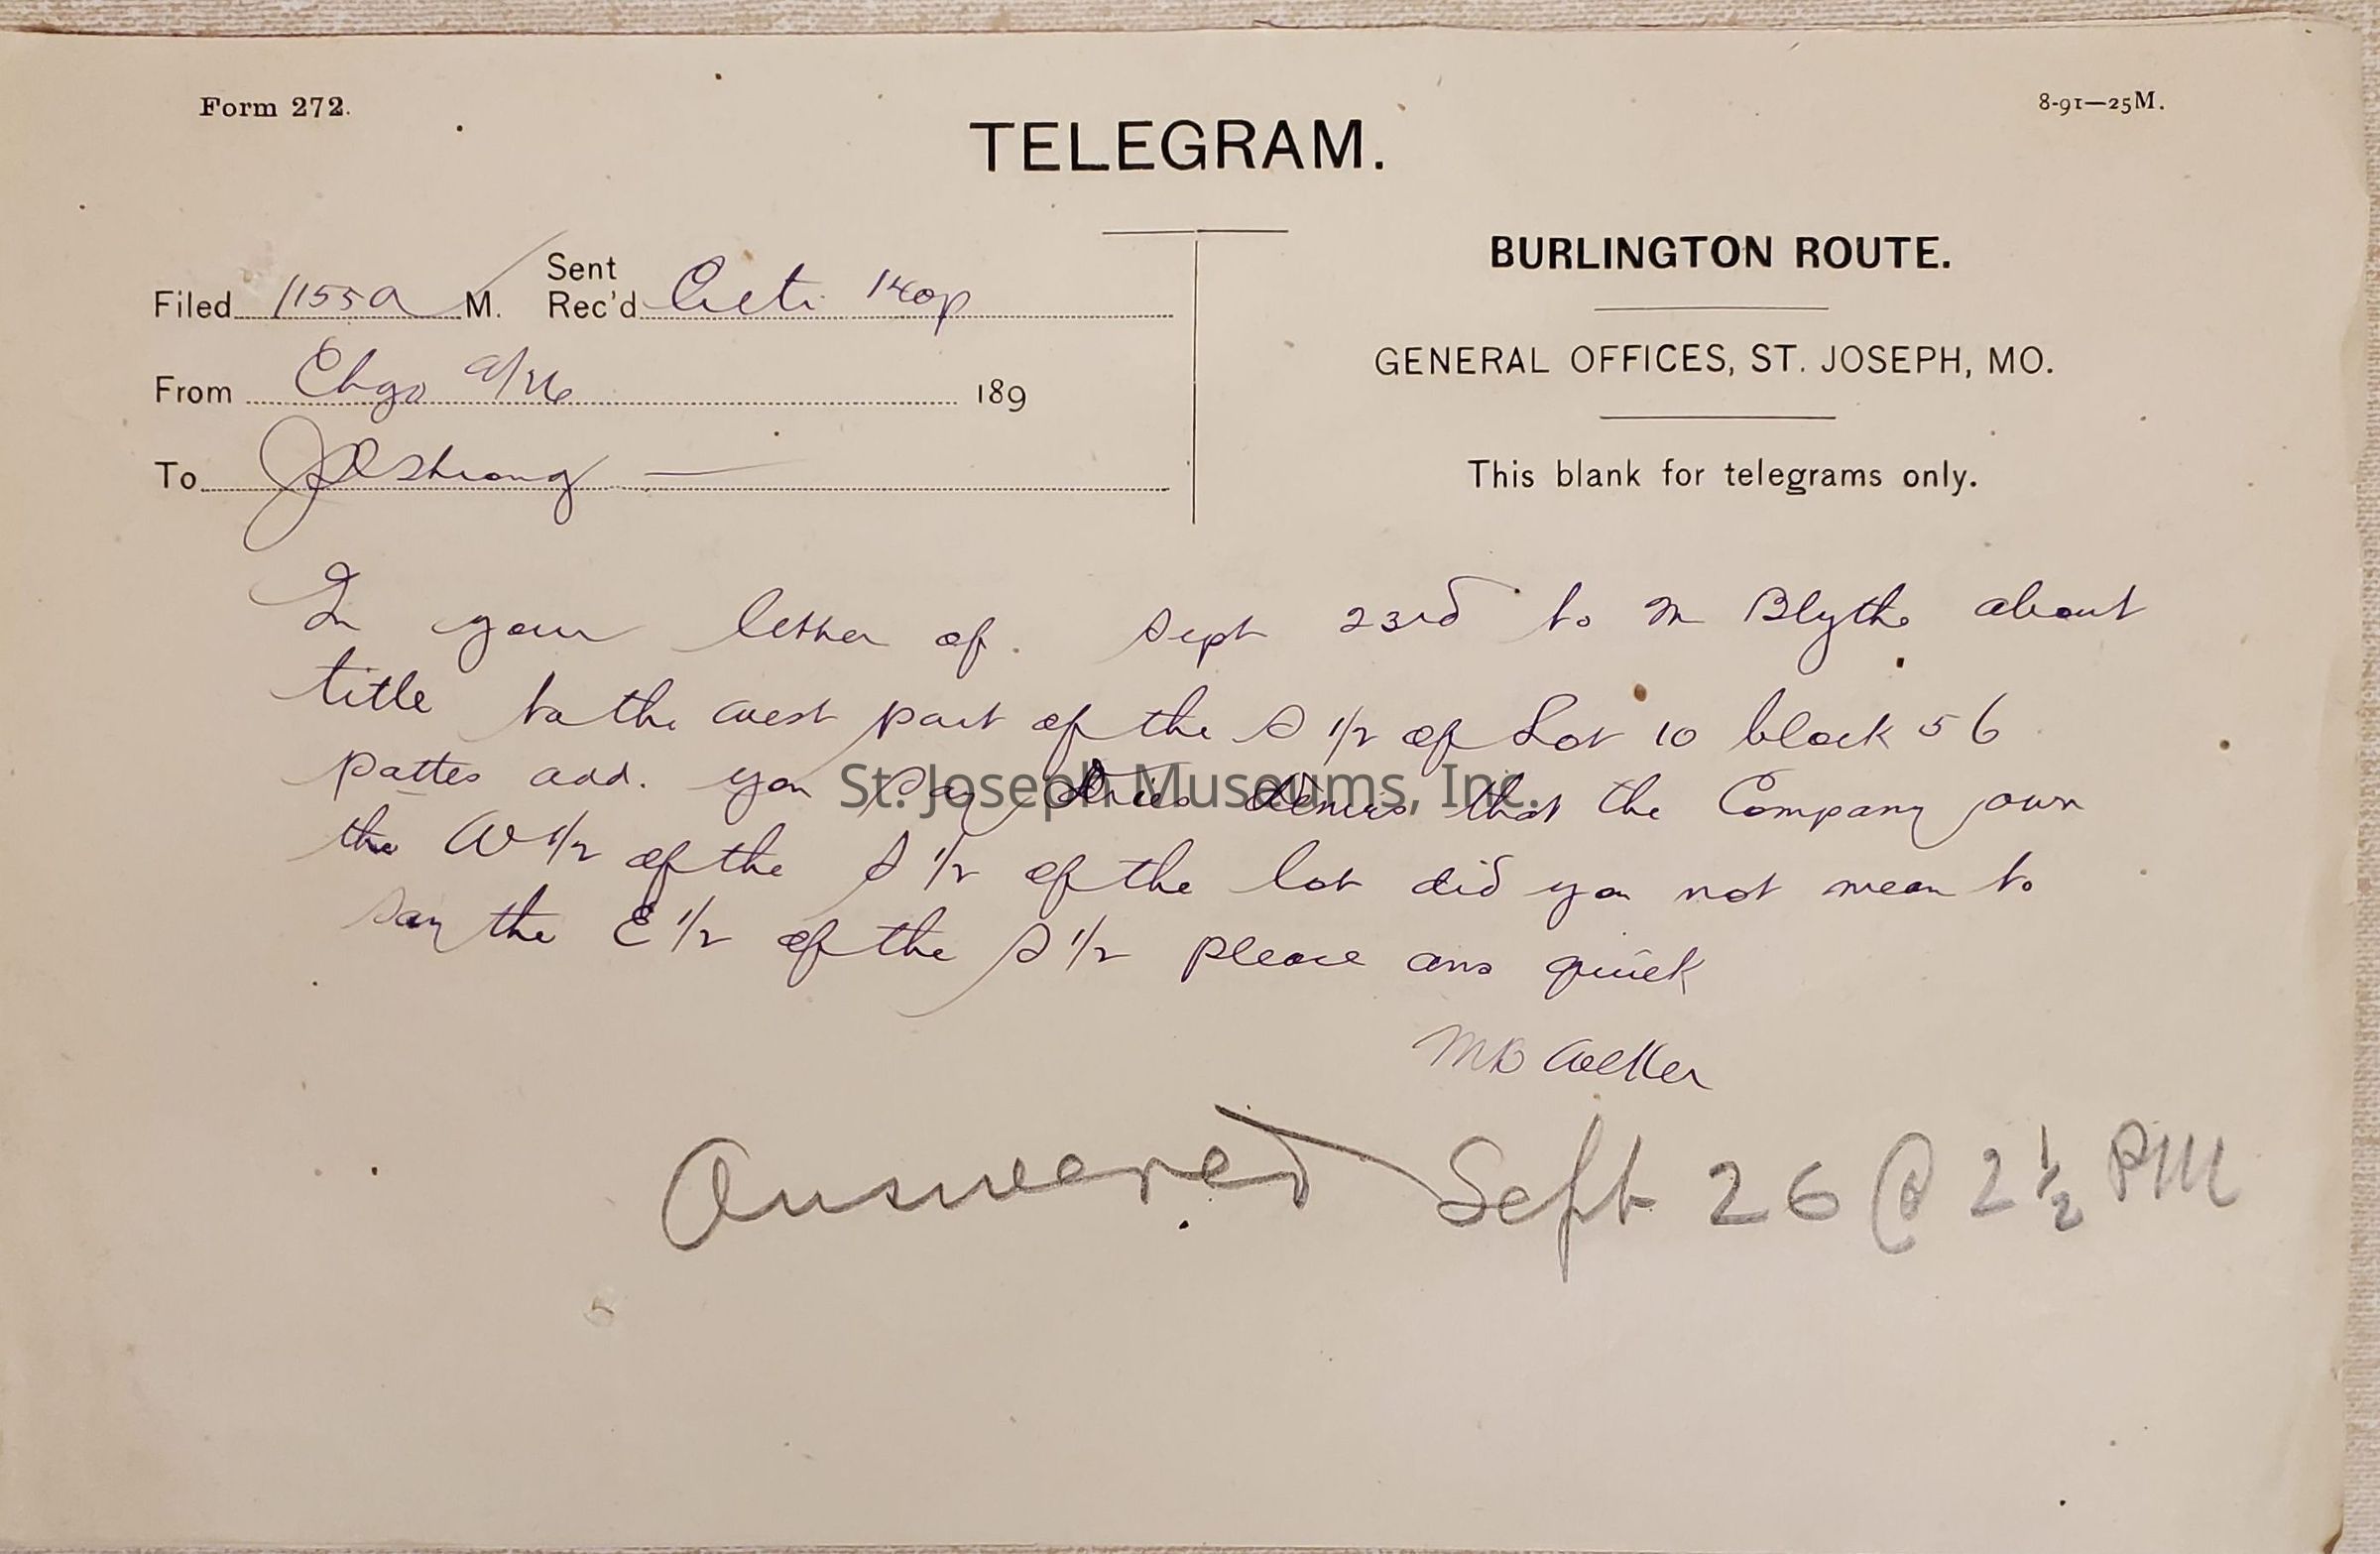 Form 272.
8-91—25M.
TELEGRAM.
Filed 1155a M. Sent Rec'd 140p
From Chgo 9/26 189
To Strong
BURLINGTON ROUTE.
GENERAL OFFICES, ST. JOSEPH, MO.
This blank for telegrams only.
In your letter of. Sept 23rd to Mr Blythe about
title to the west part of the S 1/2 of Lot 10 block 56
pattes add. you say denies that the Company own
the W 1/2 of the S 1/2 of the lot did you not mean to
say the E 1/2 of the S 1/2 please ans quick
Answered Sept 26 @ 2 1/2 PM
St. Joseph Museums, Inc.